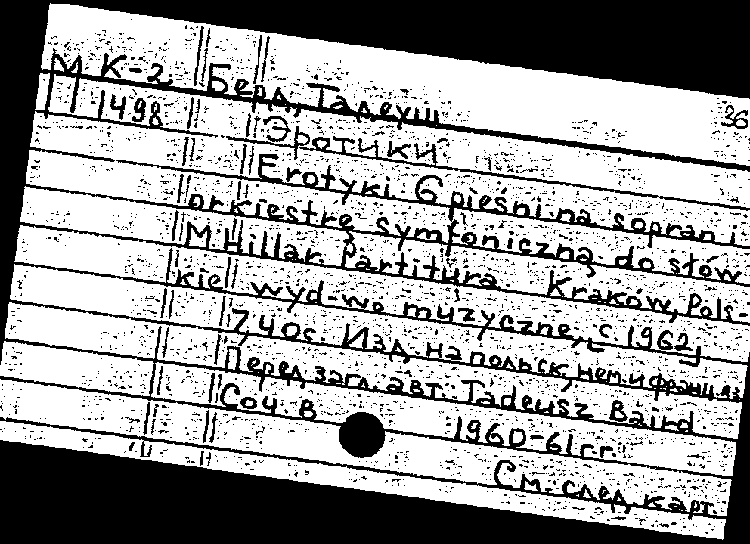 М К-2. Берд, Тадеуш 36
П 1498
Эротики
Erotyki. 6 pieśni na sopran i
orkiestrę symfoniczną do słów
M. Hillar. Partitura. Kraków, Pols-
kie wyd-wo muzyczne, [с 1962]
7, 40с. Изд. на польск., нем. и франц. яз.
Перед загл. авт.: Tadeusz Baird.
Соч. в 1960-61 г.г.
См. след. карт.